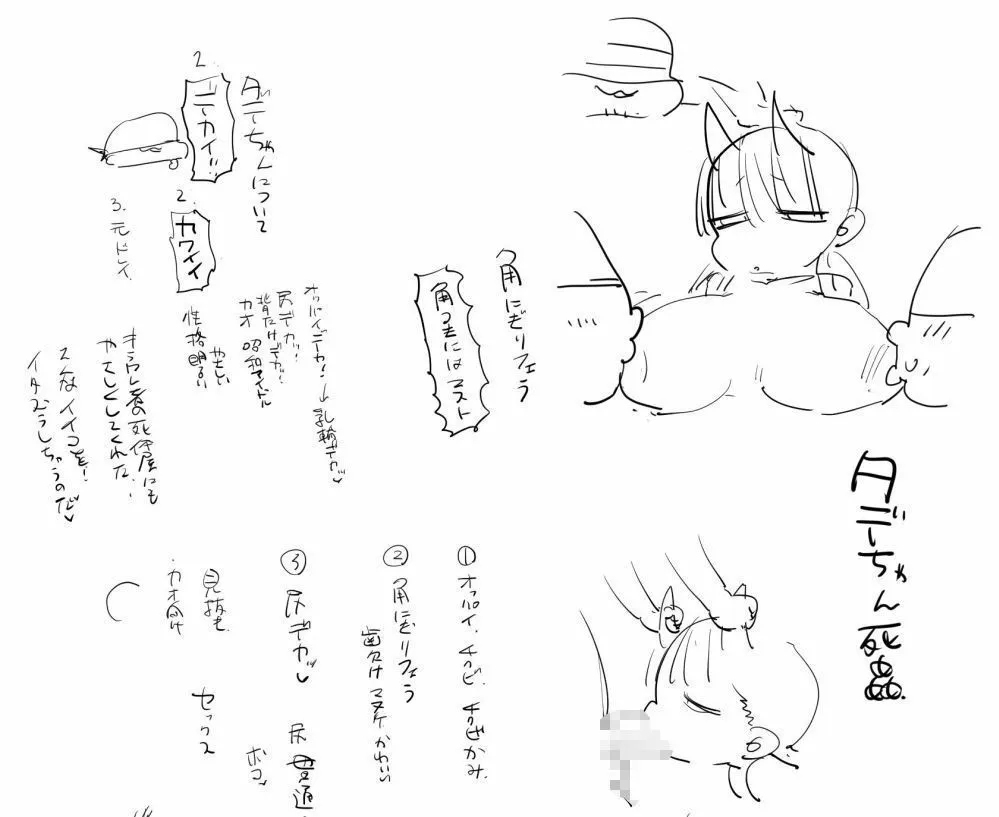 ダデーちゃん死姦
角にぎりフェラ
角つきにはマスト
ダデーちゃんについて
2.
デカイ!!
2.
カワイイ
3. 元ドレイ
オッパイデカ!→乳輪デカッ♡
尻デカッ!
背だけデカッ!
カオ 昭和アイドル
やさしい
性格明るい
キラワレ者の死体屋にも
やさしくしてくれた!
そんなイイコを!
イタズラしちゃうのだ♡
① オッパイ、チクビ、
② 角にぎりフェラ
歯欠けマヌケかわいい
③ 尻デカッ♡
尻
ボコ♡
見抜き
・カオ向け
セックス